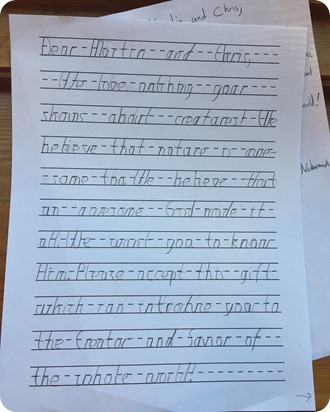 Dear Martin and Chris,
We love watching your
shows about creatures! We
believe that nature is awe-
some too. We believe that
an awesome God made it
all. We want you to know
Him. Please accept this gift
which can introduce you to
the Creator and Savior of
the whole world!
and Chris,